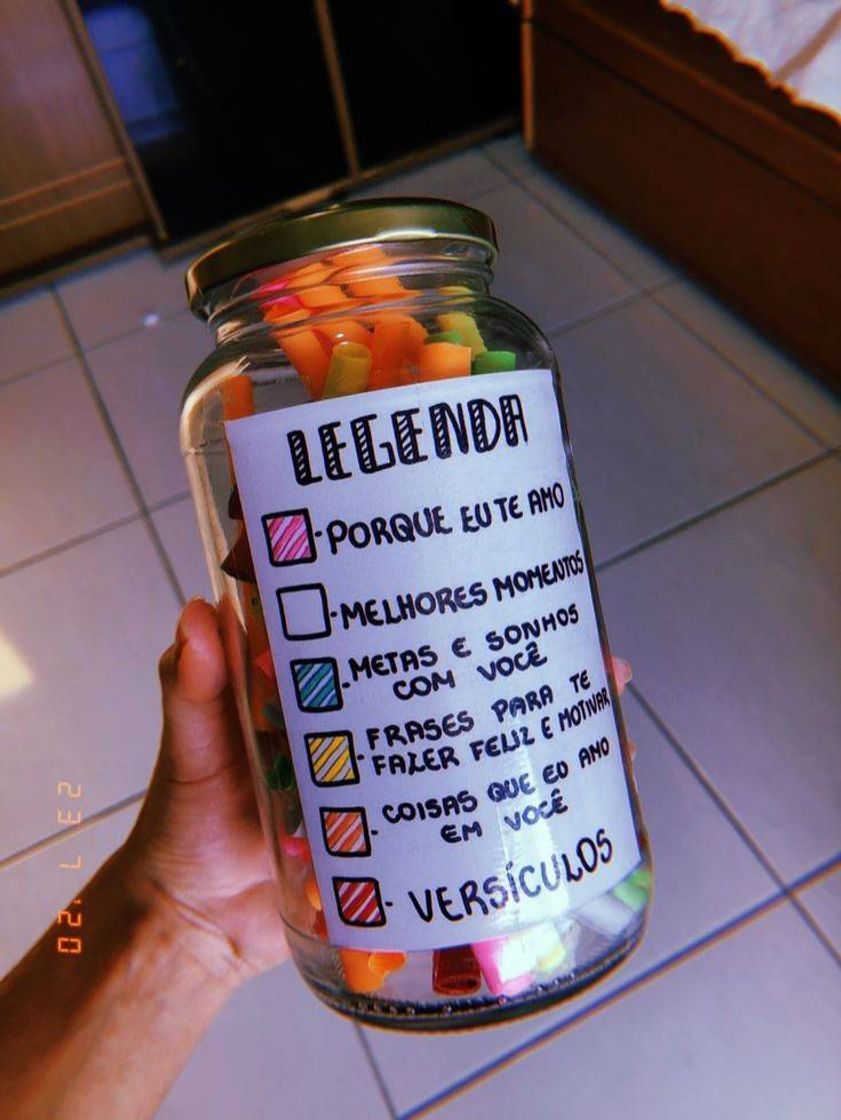 LEGENDA
- PORQUE EU TE AMO
- MELHORES MOMENTOS
- METAS E SONHOS
COM VOCÊ
- FRASES PARA TE
FAZER FELIZ E MOTIVAR
- COISAS QUE EU AMO
EM VOCÊ
- VERSÍCULOS
23 7 '20